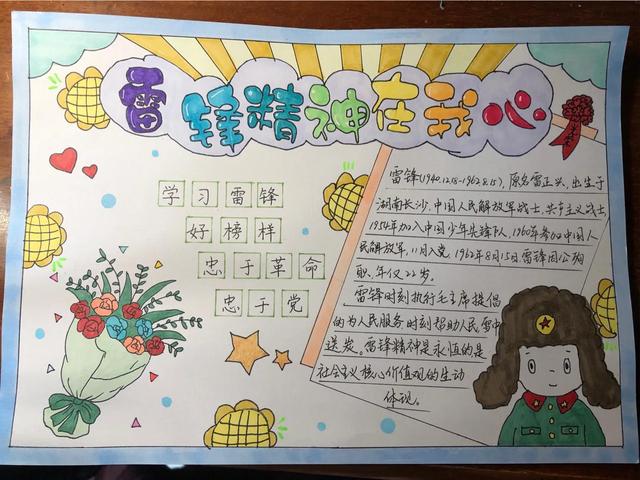 雷锋精神在我心
学习雷锋
好榜样
忠于革命
忠于党
雷锋(1940.12.18-1962.8.15),原名雷正兴,出生于
湖南长沙,中国人民解放军战士,共产主义战士,
1954年加入中国少年先锋队,1960年参加中国人
民解放军,11月入党,1962年8月15日雷锋因公殉
职,年仅22岁。
雷锋时刻执行毛主席提倡
的为人民服务,时刻帮助人民,雪中
送炭。雷锋精神是永恒的是
社会主义核心价值观的生动
体现。